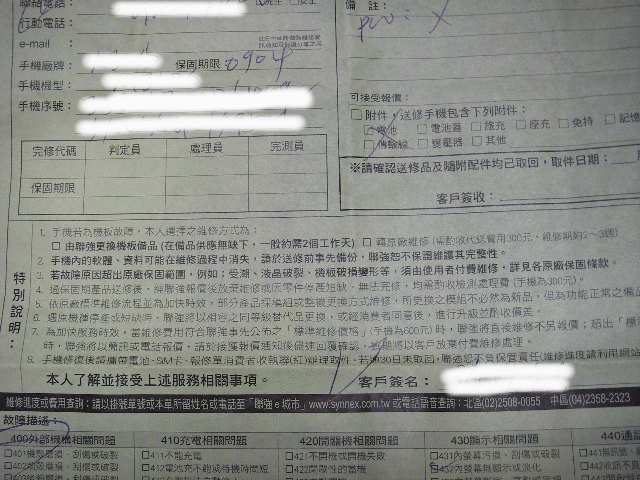 聯絡電話：
行動電話：
e-mail
手機廠牌： 保固期限： 0904
手機機型：
手機序號：
備 註：
pwi: X
可接受報價：
□ 附件，送修手機包含下列附件：
□ 電池 □ 電池蓋 □ 旅充 □ 座充 □ 免持 □ 記憶
□ 傳輸線 □ 變壓器 □ 其他
※請確認送修品及隨附配件均已取回，取件日期：
客戶簽收：
完修代碼 判定員 處理員 完測員
保固期限
特別說明：
1. 手機若為機板故障，本人選擇之維修方式為：
□ 由聯強更換機板備品 (在備品供應無缺下，一般約需2個工作天) □ 轉原廠維修 (需酌收代送費用300元，維修期約2～3週)
2. 手機內的軟體、資料可能在維修過程中消失，請於送修前事先備份，聯強恕不保證維護其完整性。
3. 若故障原因超出原廠保固範圍，例如：受潮、液晶破裂、機板破損變形等，須由使用者付費維修，詳見各原廠保固條款。
4. 過保固期產品送修後，經聯強報價後放棄維修或因零件停產短缺、無法完修，均需酌收檢測處理費 (手機為300元)。
5. 依原廠標準維修流程並為加快時效，部分產品採模組或整機更換方式維修，所更換之模組不必然為新品，但為功能正常之備品
6. 遇原機種停產或短缺時，聯強將以相容之同等級替代品更換，或經消費者同意後，進行升級並酌收價差。
7. 為加快服務時效，當維修費用符合聯強事先公布之「標準維修價格」(手機為600元)時，聯強將直接維修不另報價；超出「標
時，聯強將以簡訊或電話報價，請於接獲報價通知後儘速回覆確認，
8. 手機修復後請攜帶電池、SIM卡、報修單消費者收執聯(紅)辦理取件，若逾30日未取回，聯強恕不負保管責任(維修進度請利用網站
本人了解並接受上述服務相關事項。 客戶簽名：
維修進度或費用查詢：請以掛號單號或本單所留姓名或電話至「聯強e城市」www.synnex.com.tw 或電話語音查詢：北區(02)2508-0055 中區(04)2358-2323
故障描述：
400外部機構相關問題 410充電相關問題 420開關機相關問題 430顯示相關問題 440通話
□401機殼磨損、刮傷或破裂 □411不能充電 □421不開機或開機失敗 □431內螢幕污損、刮傷或破裂
□412電池充不飽或待機時間短 □422間歇性的當機 □432內螢幕無顯示或淡化